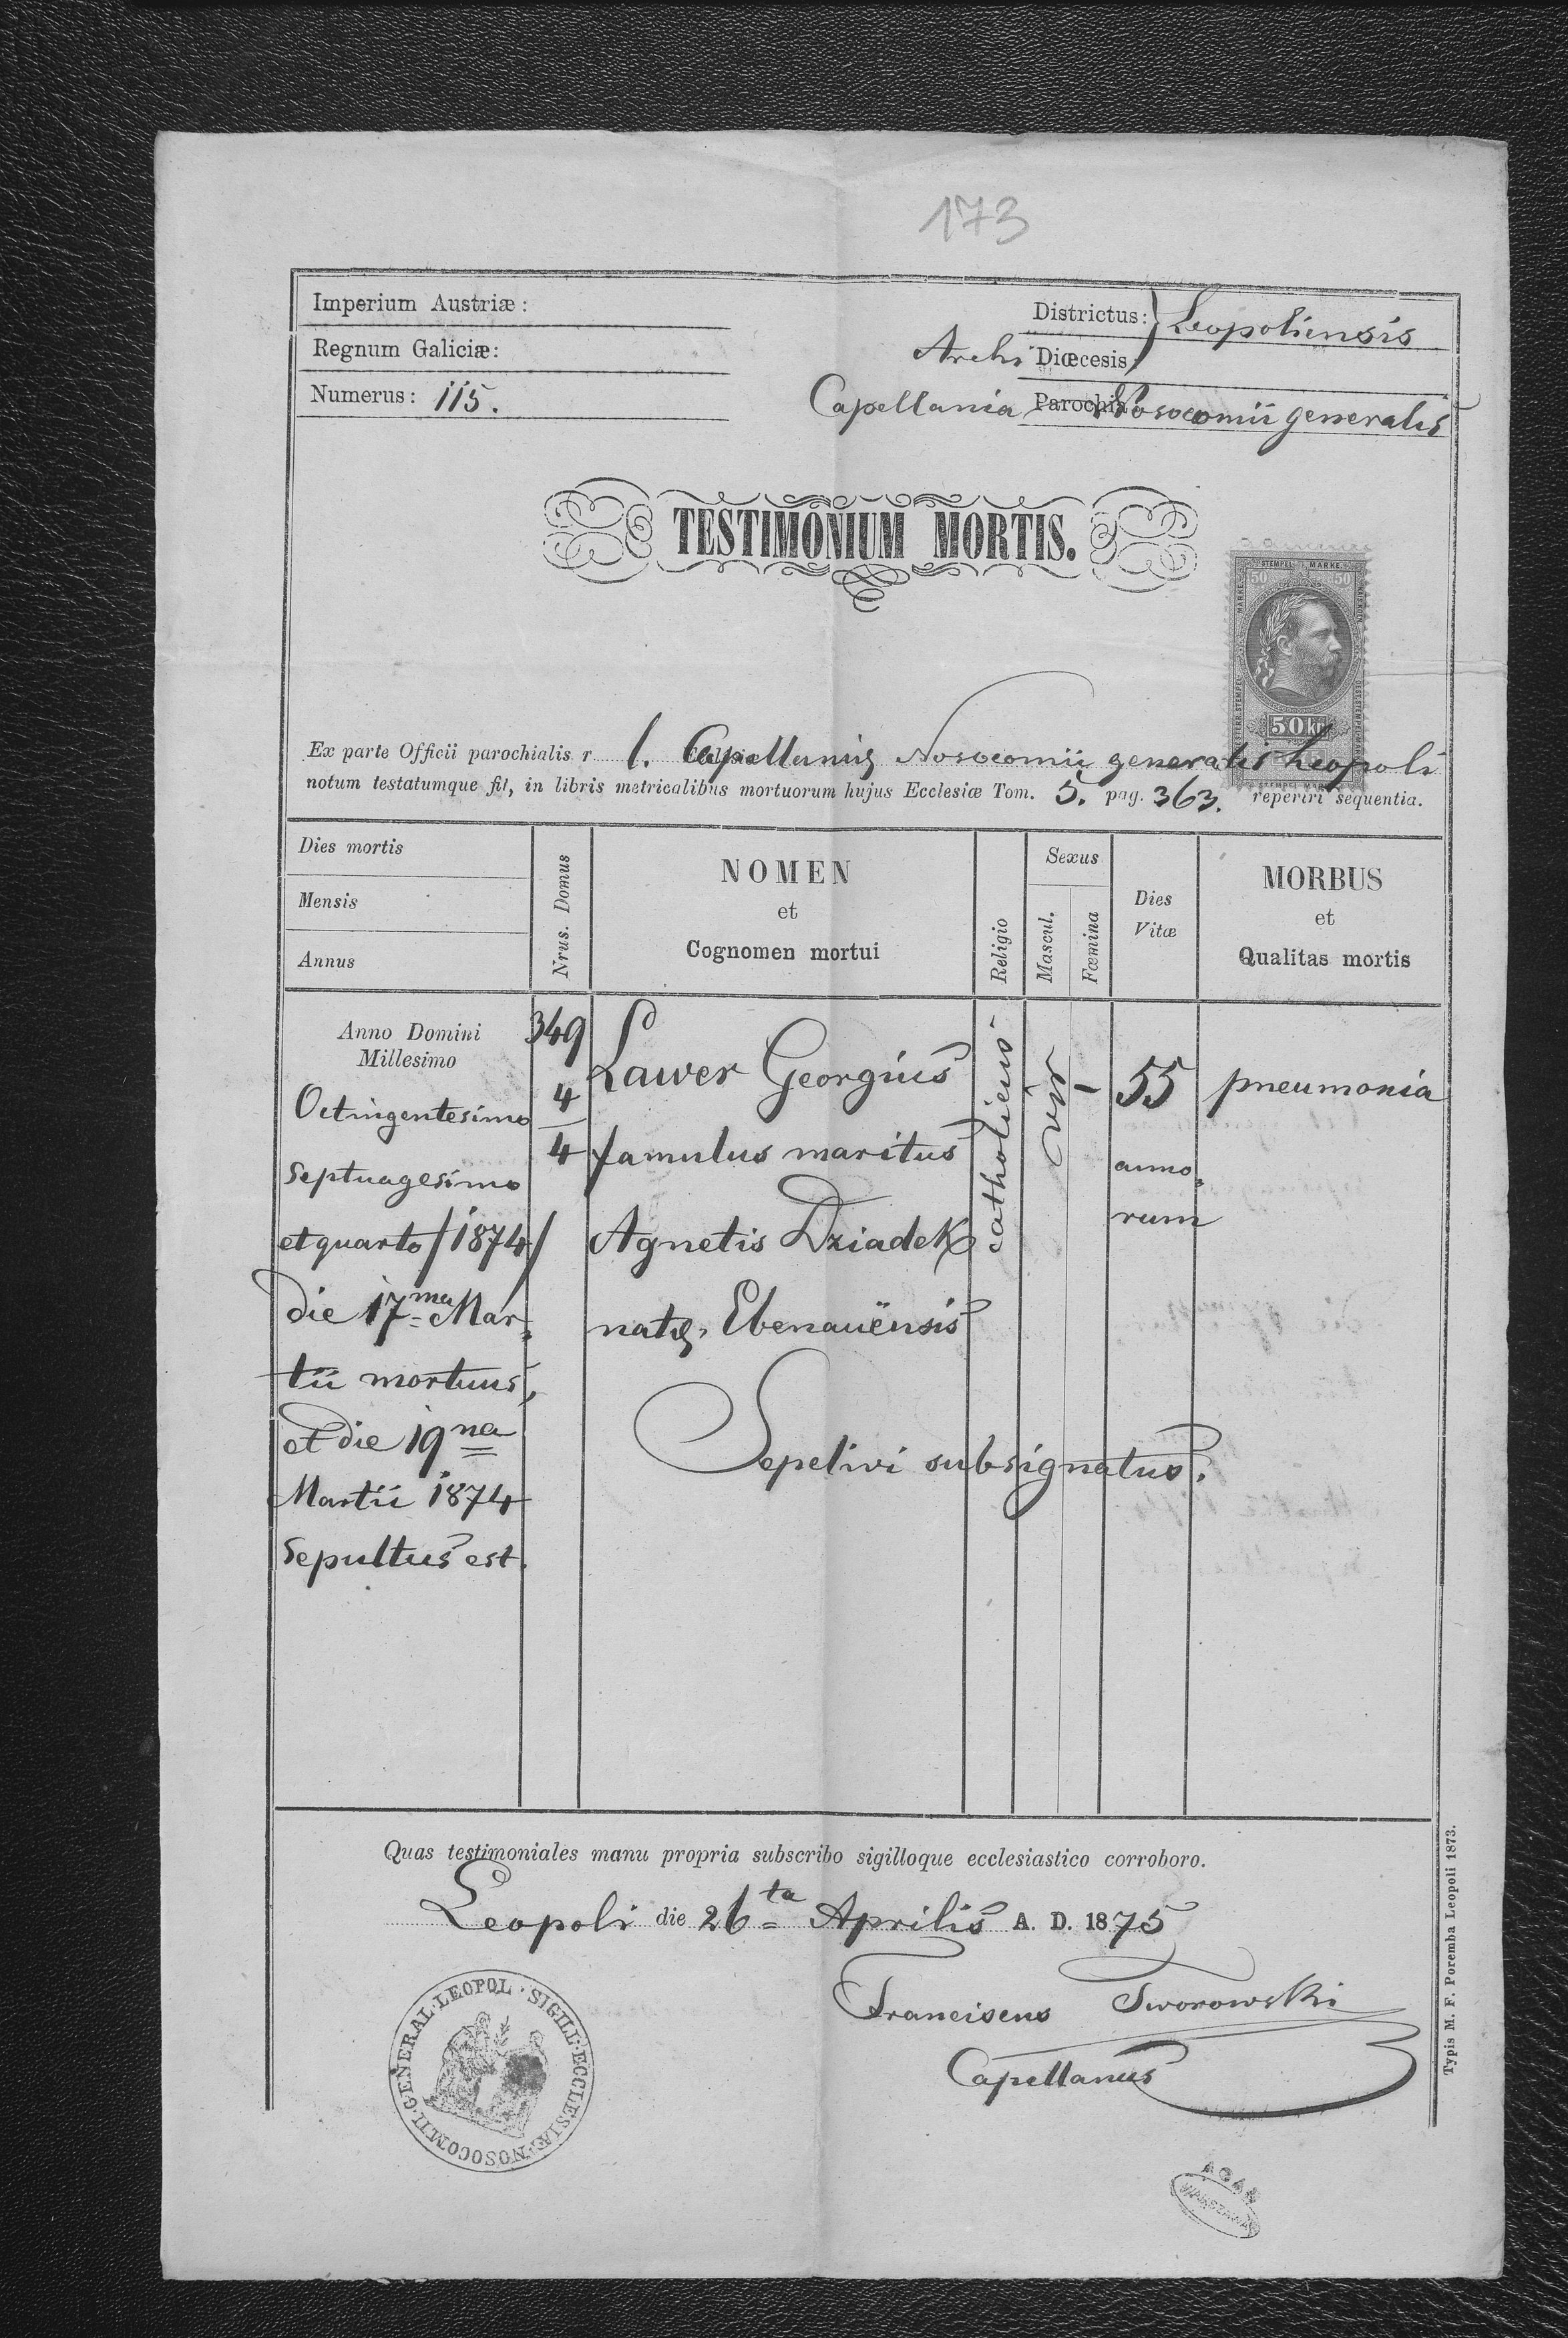 173
Imperium Austriæ:
Regnum Galiciæ:
Numerus: 115.
Districtus: } Leopoliensis
Archi Diœcesis:
Capellania Parochia Nosocomii generalis
TESTIMONIUM MORTIS.
STEMPEL MARKE
50 50
50 kr
Ex parte Officii parochialis r. l. Capellaniæ Nosocomii generalis Leopoli
notum testatumque fit, in libris metricalibus mortuorum hujus Ecclesiæ Tom. 5. pag. 363. reperiri sequentia.
Dies mortis
Mensis
Annus
Nrus. Domus
NOMEN
et
Cognomen mortui
Religio
Sexus
Mascul.
Fœmina
Dies
Vitæ
MORBUS
et
Qualitas mortis
Anno Domini
Millesimo
Octingentesimo
septuagesimo
et quarto /1874/
die 17ma Mar=
tii mortuus,
et die 19na
Martii 1874
sepultus est.
349
4
4
Lawer Georgius
famulus maritus
Agnetis Dziadek
natæ, Ebenauënsis
catholicus
vir
–
55
anno=
rum
pneumonia
Sepelivi subsignatus.
Quas testimoniales manu propria subscribo sigilloque ecclesiastico corroboro.
Leopoli die 26ta Aprilis A. D. 1875
Franciscus Tworowski
Capellanus
SIGILL·ECCLESIÆ·NOSOCOMII·GENERAL·LEOPOL·
AGAD
WARSZAWA
Typis M. F. Poremba Leopoli 1873.